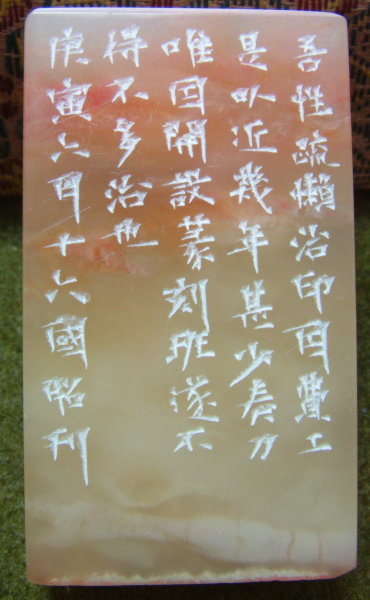 吾性疏懒治印因费工
是以近几年甚少奏刀
唯因開設篆刻班遂不
得不多治也
庚寅六月十六國昭刊